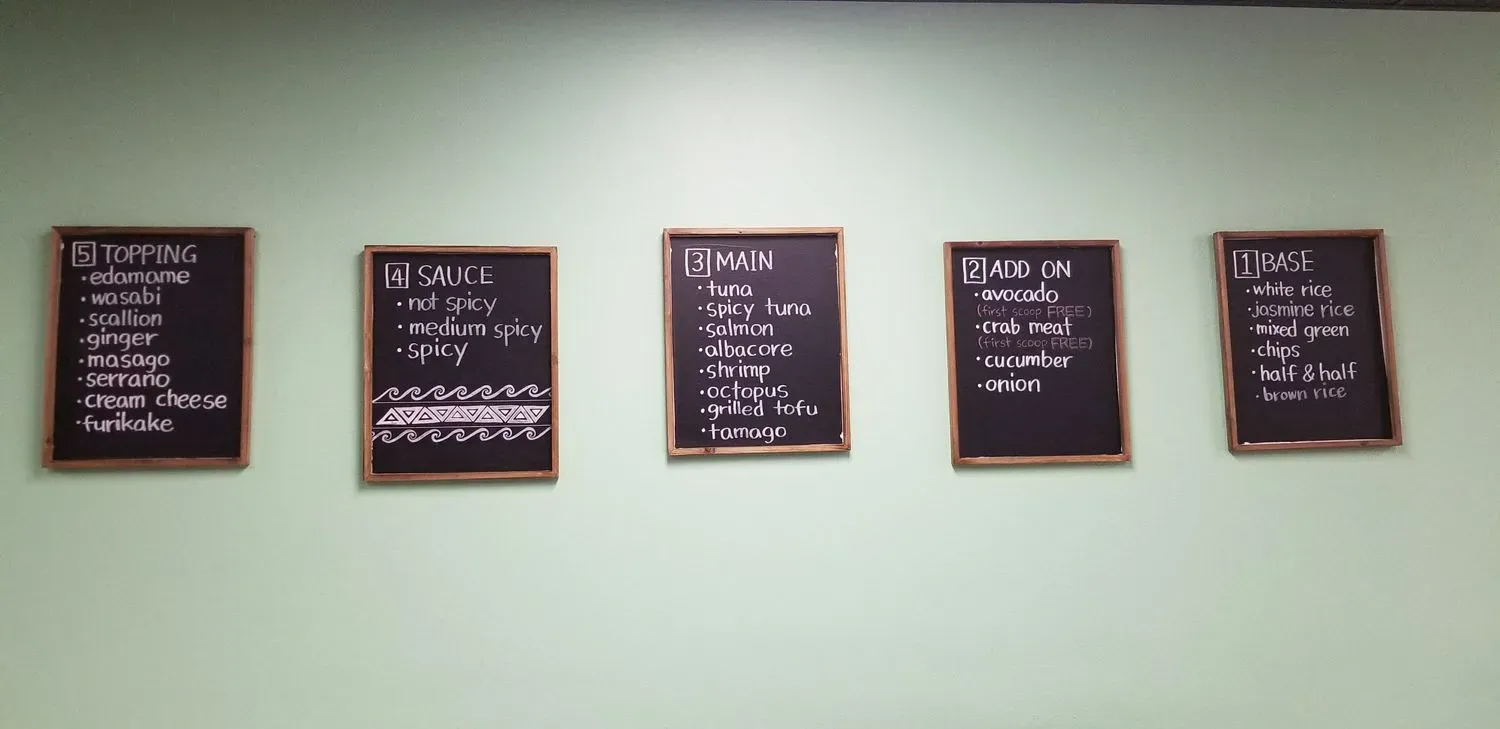 5 TOPPING
• edamame
• wasabi
• scallion
• ginger
• masago
• serrano
• cream cheese
• furikake
4 SAUCE
• not spicy
• medium spicy
• spicy
3 MAIN
• tuna
• spicy tuna
• salmon
• albacore
• shrimp
• octopus
• grilled tofu
• tamago
2 ADD ON
• avocado
(first scoop FREE)
• crab meat
(first scoop FREE)
• cucumber
• onion
1 BASE
• white rice
• jasmine rice
• mixed green
• chips
• half & half
• brown rice